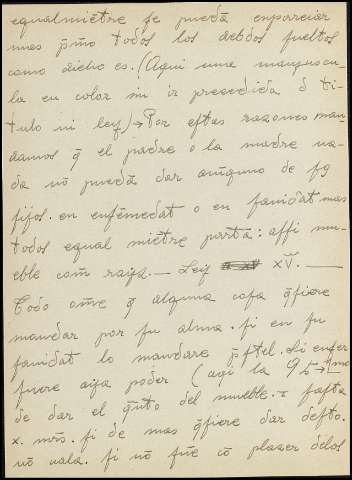 equalmiẽtre se puedã esparceiar
mas p̃mo todos los debdos sueltos
como dicho es. (Aqui una mayuscu-
la en color sin ir precedida d ti-
tulo ni ley) → Por estas razones man
damos q̃ el padre o la madre na-
da nõ puedã dar a nĩguno de ss
fijos. en enfẽmedat o en sanidat mas
todos equal miẽtre parta: assi mu-
eble com̃ raiya. — Ley XV. —
Todo ome q̃ alguna cosa q̃siere
mandar por su alma. si en su
sanidat lo mandare p̃stel. Si enfer
fuere aya poder (aqi la 9
de dar el q̃nto del mueble. fasta
x. mr̃s. si de mas q̃siere dar desto.
nõ uala. si nõ fue cõ plazer delos